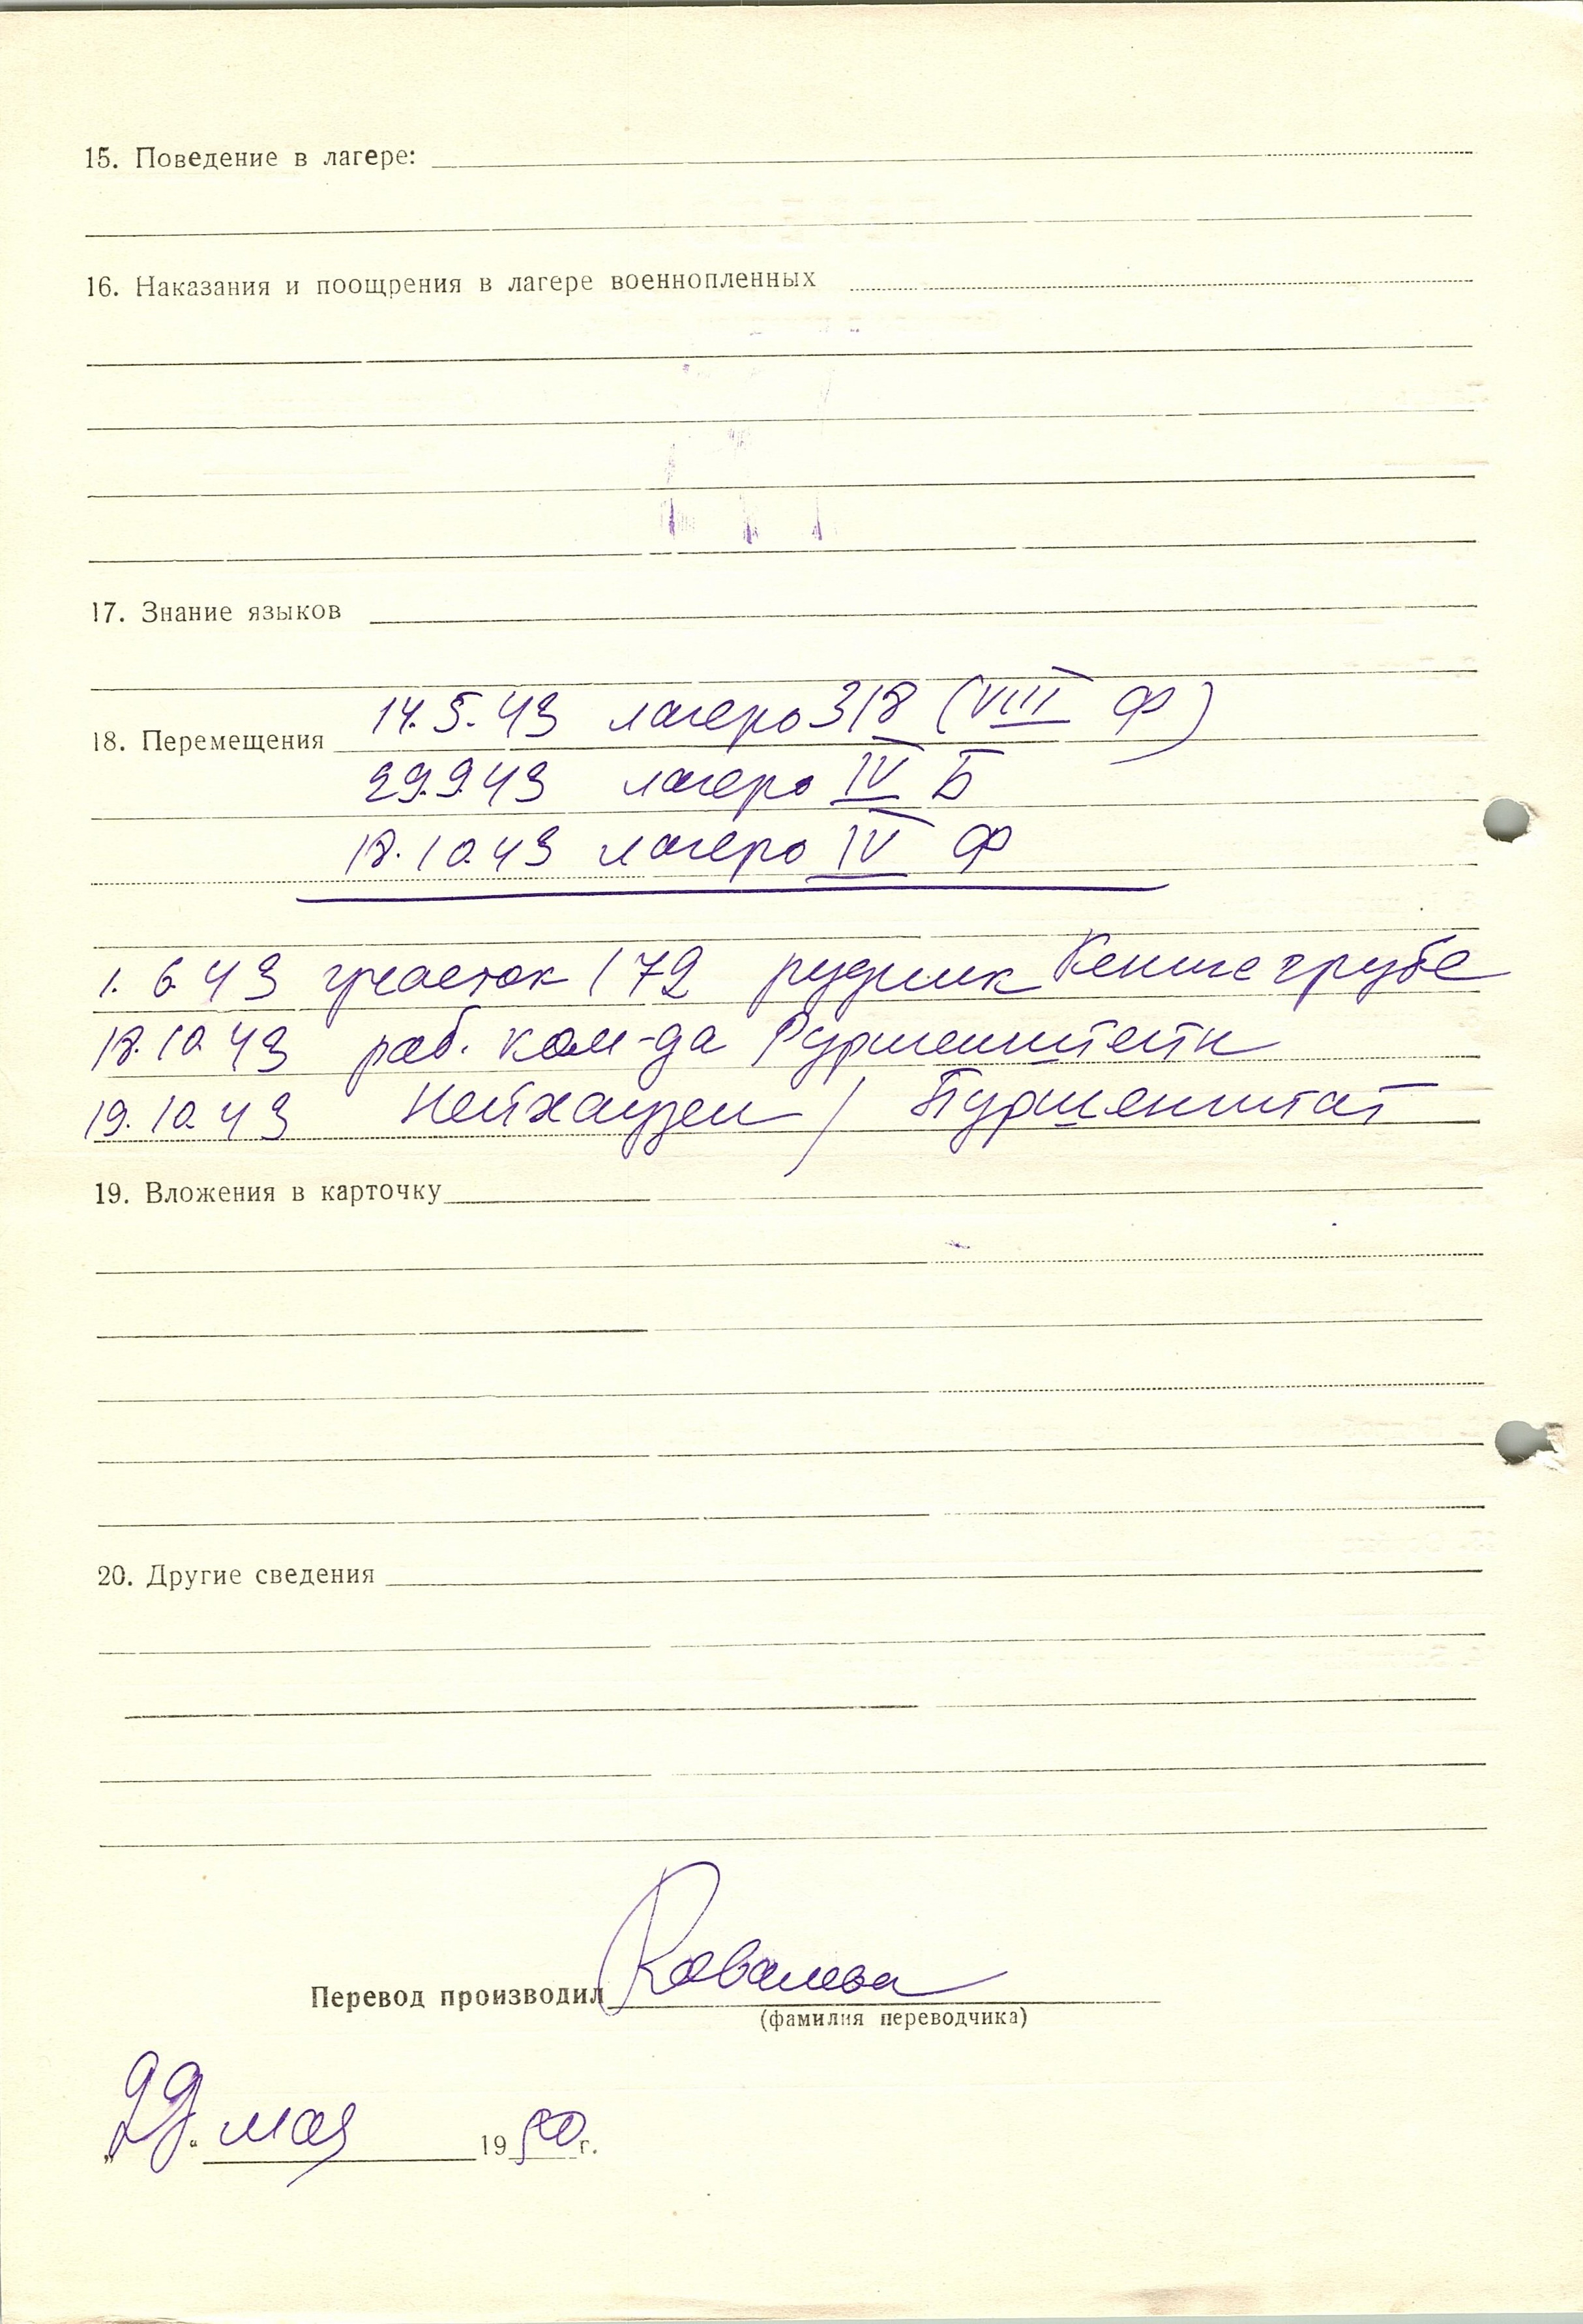 15. Поведение в лагере:
16. Наказания и поощрения в лагере военнопленных
17. Знание языков
14.5.43 лагерь 318 (VIII Ф)
18. Перемещения
29.9.43 лагерь IV Б
18.10.43 лагерь IV Ф
1.6.43 участок 172 рудник Кенигсгрубе
18.10.43 раб. ком-да
19.10.43 Нейхаузен /
19. Вложения в карточку
20. Другие сведения
Перевод производил Ковалева
(фамилия переводчика)
„29“ мая 1950 г.